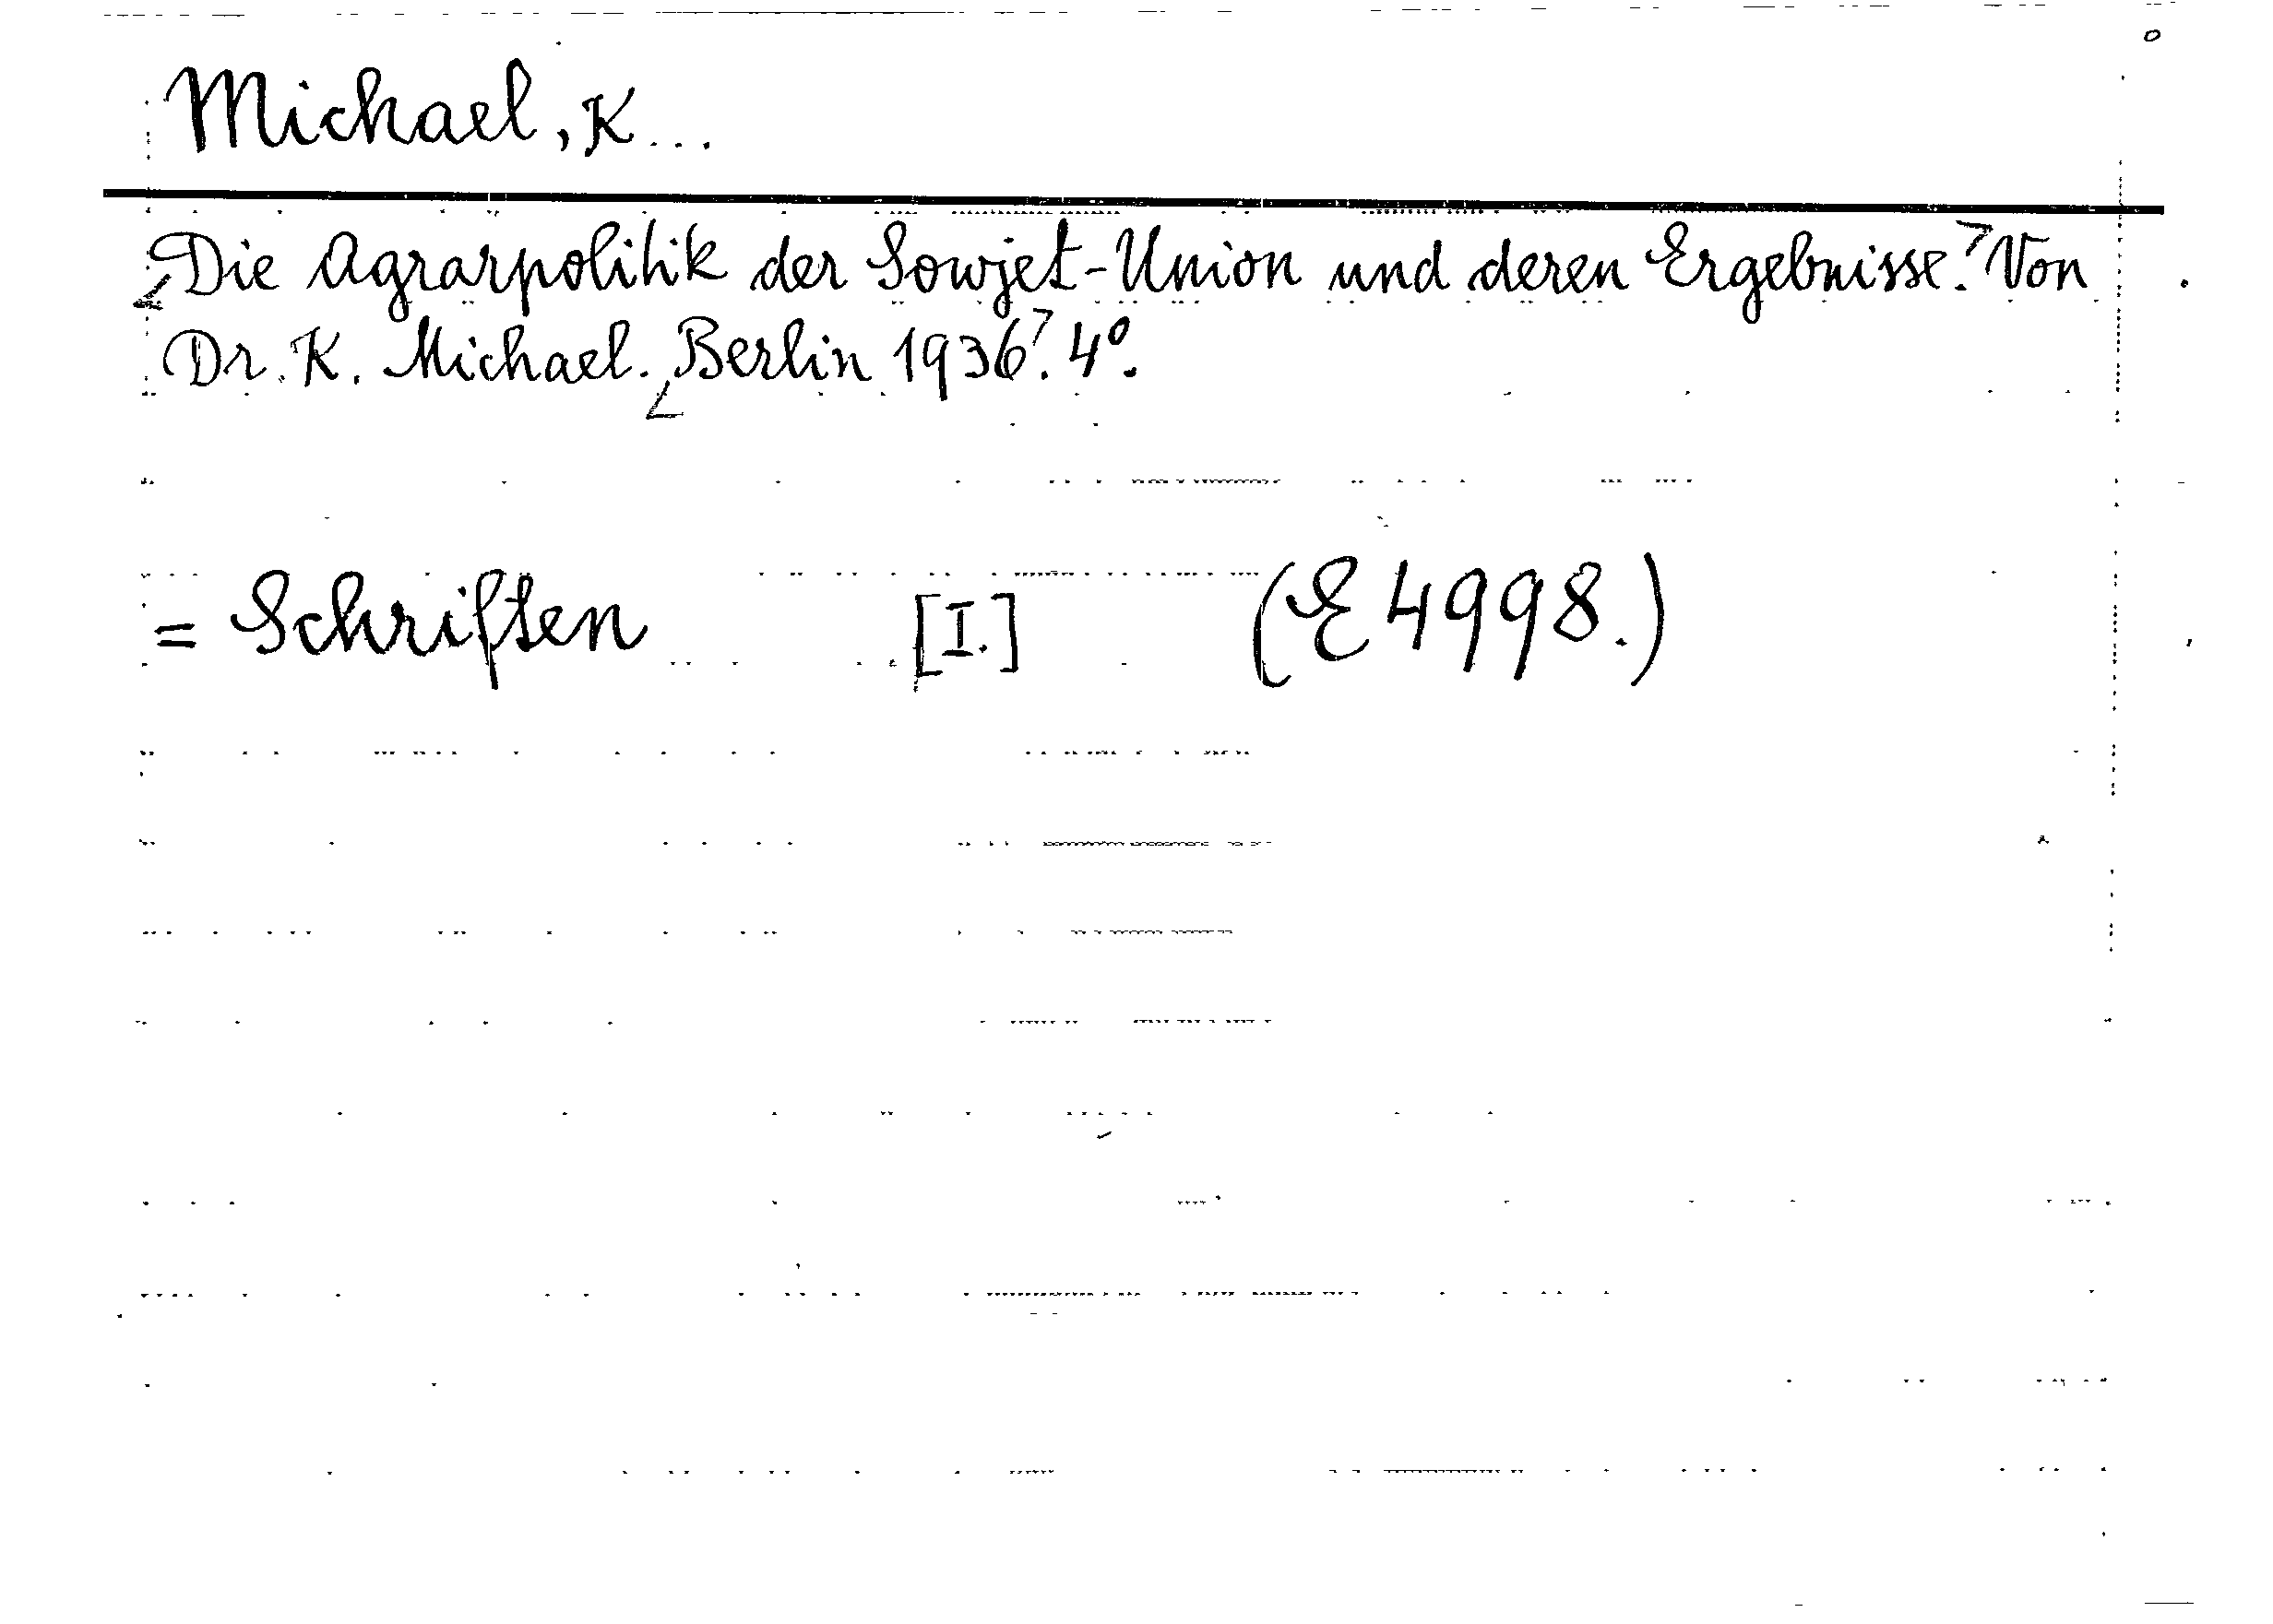 Michael, K...
Die Agrarpolitik der Sowjet-Union und deren Ergebnisse. Von
Dr. K. Michael. Berlin 1936. 4º.
= Schriften [I.] (E 4998.)